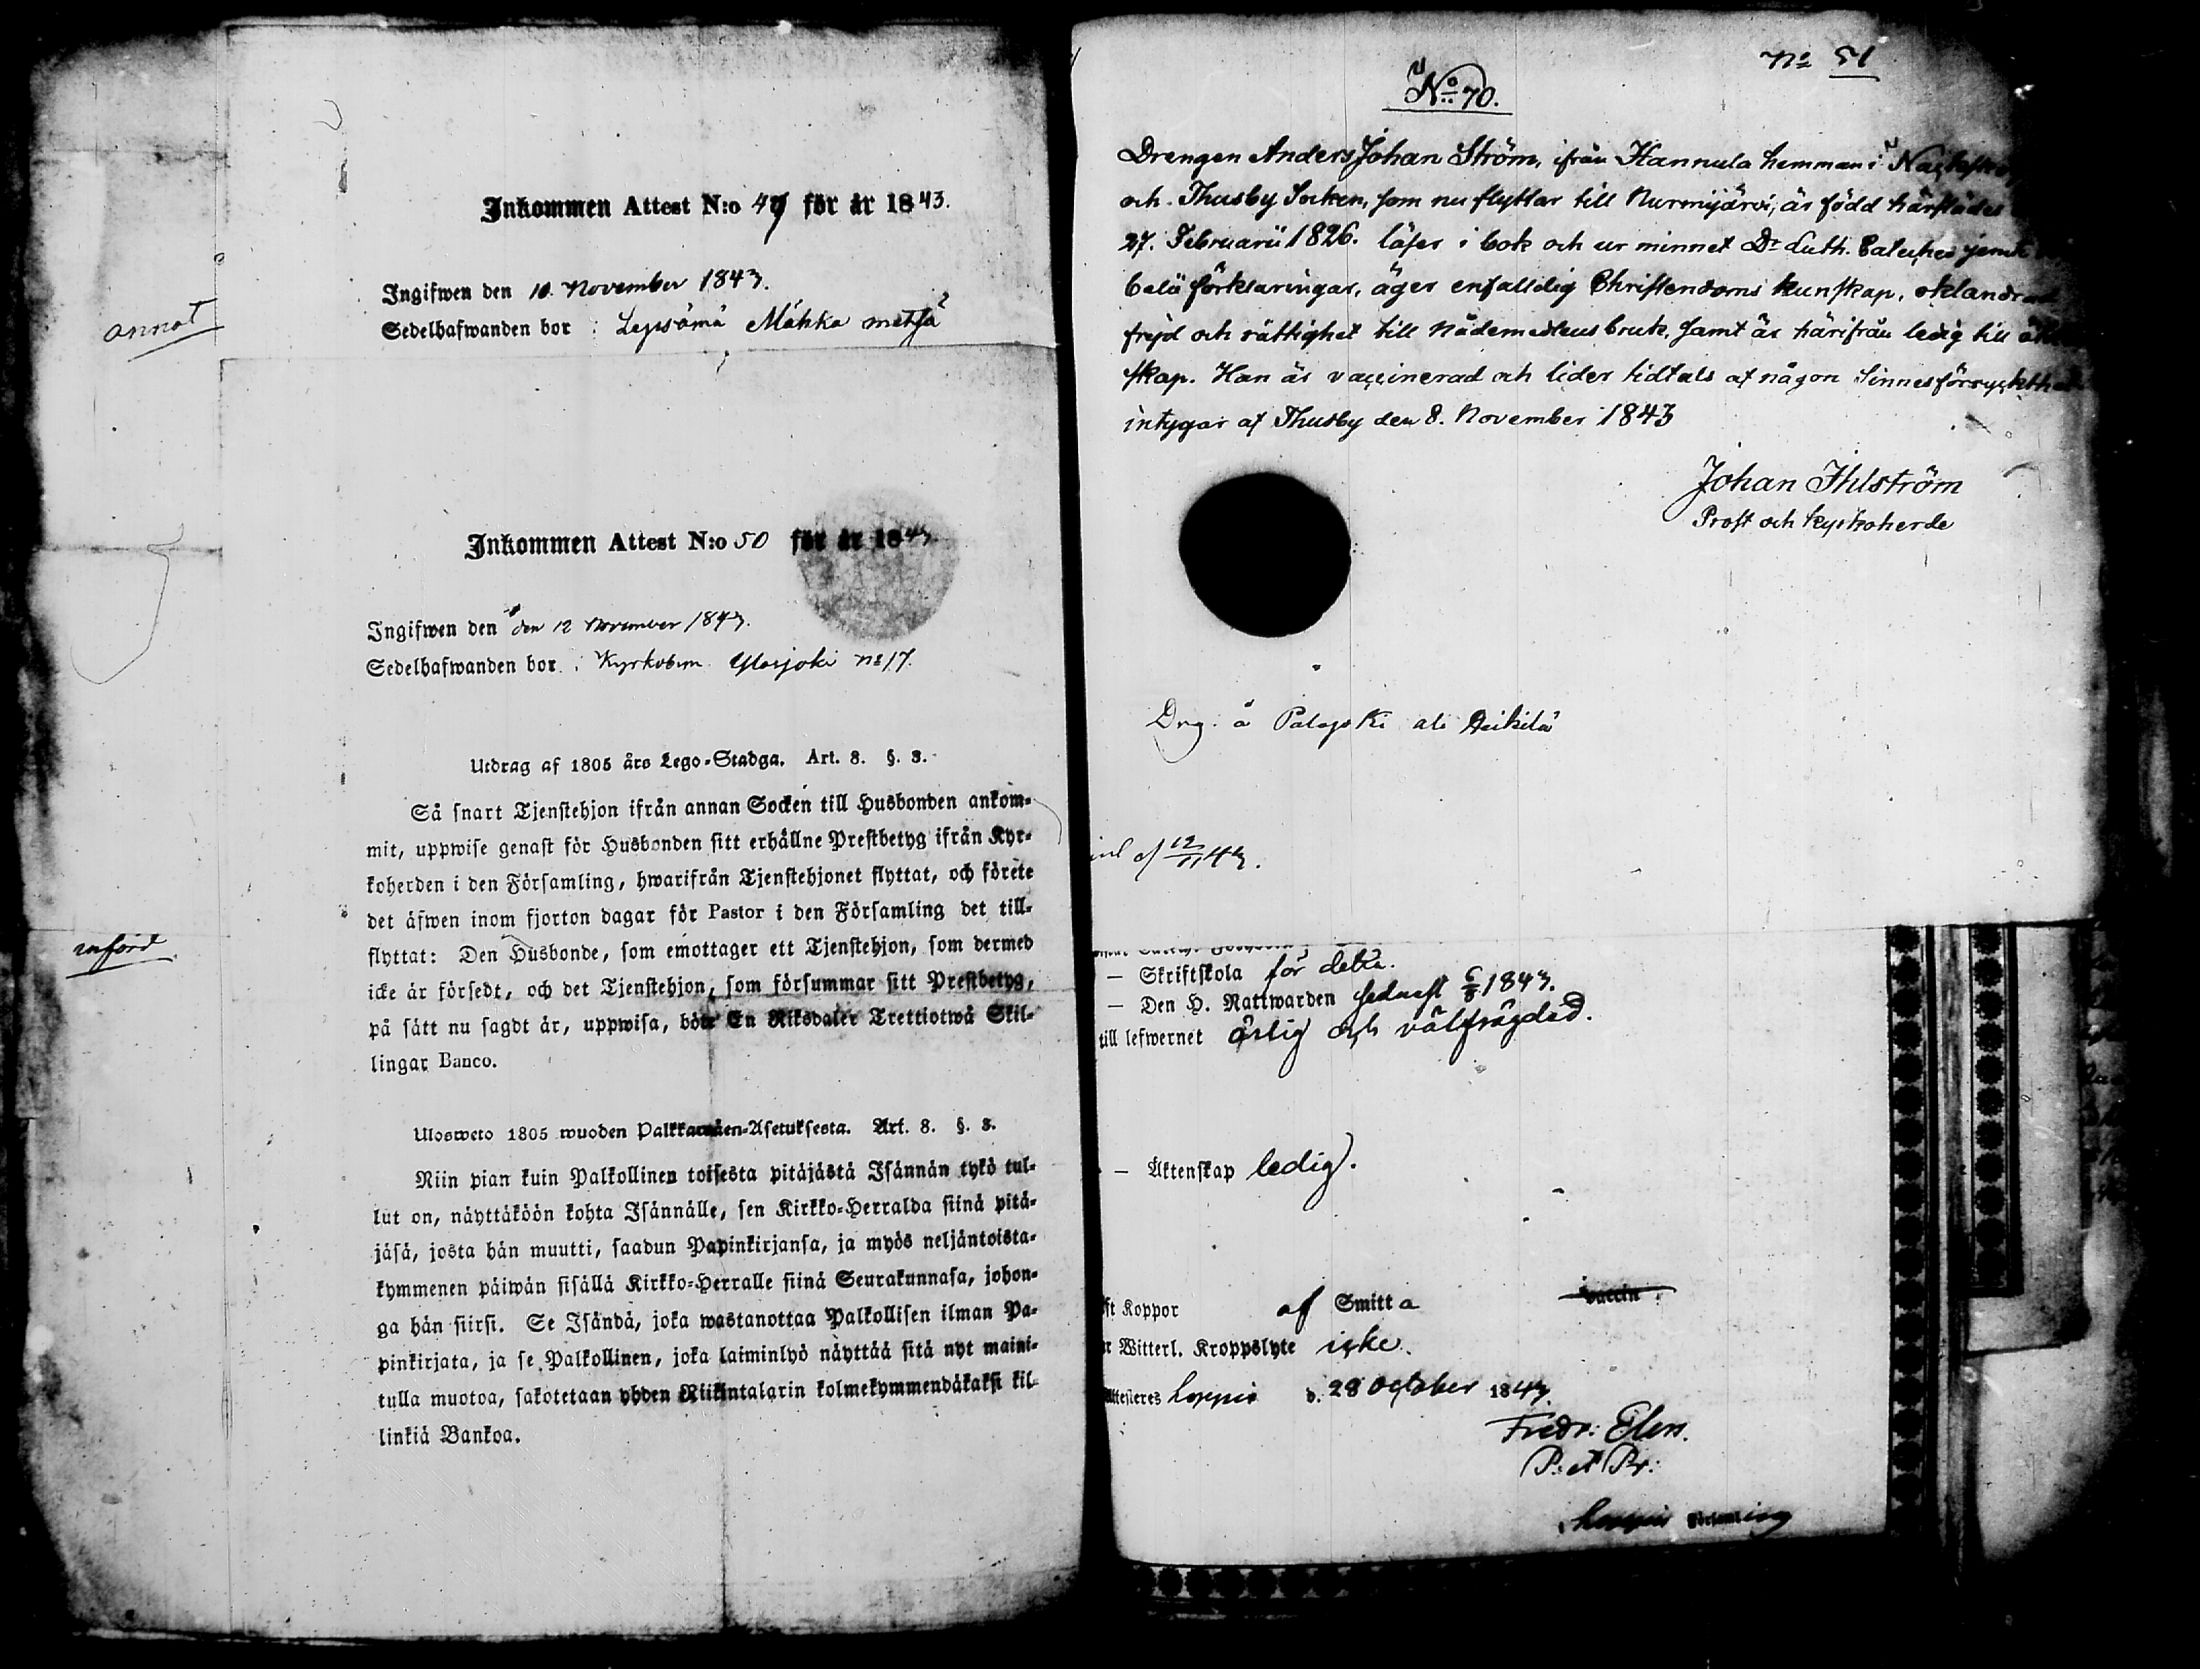 annot
införd
Inkommen Attest N:o 49 för år 1843.
Ingifwen den 10. November 1843.
Sedelhafwanden bor i Lepsämä Mähkä metsä
Inkommen Attest N:o 50 för år 1843.
Ingifwen den den 12 November 1843.
Sedelhafwanden bor i Kyrkobyn No 17.
Utdrag af 1805 års Lego-Stadga. Art. 8. §. 3.
Så snart Tjenstehjon ifrån annan Socken till Husbonden ankom-
mit, uppwise genast för Husbonden sitt erhållne Prestbetyg ifrån Kyr-
koherden i den Församling, hwarifrån Tjenstehjonet flyttat, och förete
det äfwen inom fjorton dagar för Pastor i den Församling det till-
flyttat: Den Husbonde, som emottager ett Tjenstehjon, som dermed
icke är försedt, och det Tjenstehjon, som försummar sitt Prestbetyg,
på sätt nu sagdt är, uppwisa, böte En Riksdaler Trettiotwå Skil-
lingar Banco.
Ulosweto 1805 wuoden Palkkawäen-Asetuksesta. Art. 8. §. 3.
Niin pian kuin Palkollinen toisesta pitäjästä Isännän tykö tul-
lut on, näyttäköön kohta Isännälle, sen Kirkko-Herralda siinä pitä-
jäsä, josta hän muutti, saadun Papinkirjansa, ja myös neljäntoista-
kymmenen päiwän sisällä Kirkko-Herralle siinä Seurakunnasa, johon-
ga hän siirsi. Se Isändä, joka wastanottaa Palkollisen ilman Pa-
pinkirjata, ja se Palkollinen, joka laiminlyö näyttää sitä nyt maini-
tulla muotoa, sakotetaan yhden Riikintalarin kolmekymmendäkaksi kil-
linkiä Bankoa.
No 51
No 70.
Drengen Anders Johan Ström, ifrån Hannula hemman i
och Thusby Socken, som nu flyttar till Nurmijärvi, är född härstädes
27. Februarii 1826. läser i bok och ur minnet Dr Luth. Cateches jemte
förklaringar, äger enfalldig Christendoms kunskap, oklandrad
frejd och rättighet till Nådemedlens bruk, samt är härifrån ledig till äkten
skap. Han är vaccinerad och lider tidtals af någon Sinnesförryckthet
intygar af Thusby den 8. November 1843
Johan Ihlström
Prost och kyrkoherde
Drg. å Palojoki
inl d 12/11 43.
— Skriftskola för detta.
— Den H. Nattwarden sednast 6/8 1843.
till lefwernet ärlig och välfrägdad.
— Äktenskap ledig.
ft Koppor af Smitta vaccin
r Witterl. Kroppslyte icke.
Attesteres Loppis d. 28 October 1843.
Fredr: Elers.
P: et Pr:
Loppis Församling